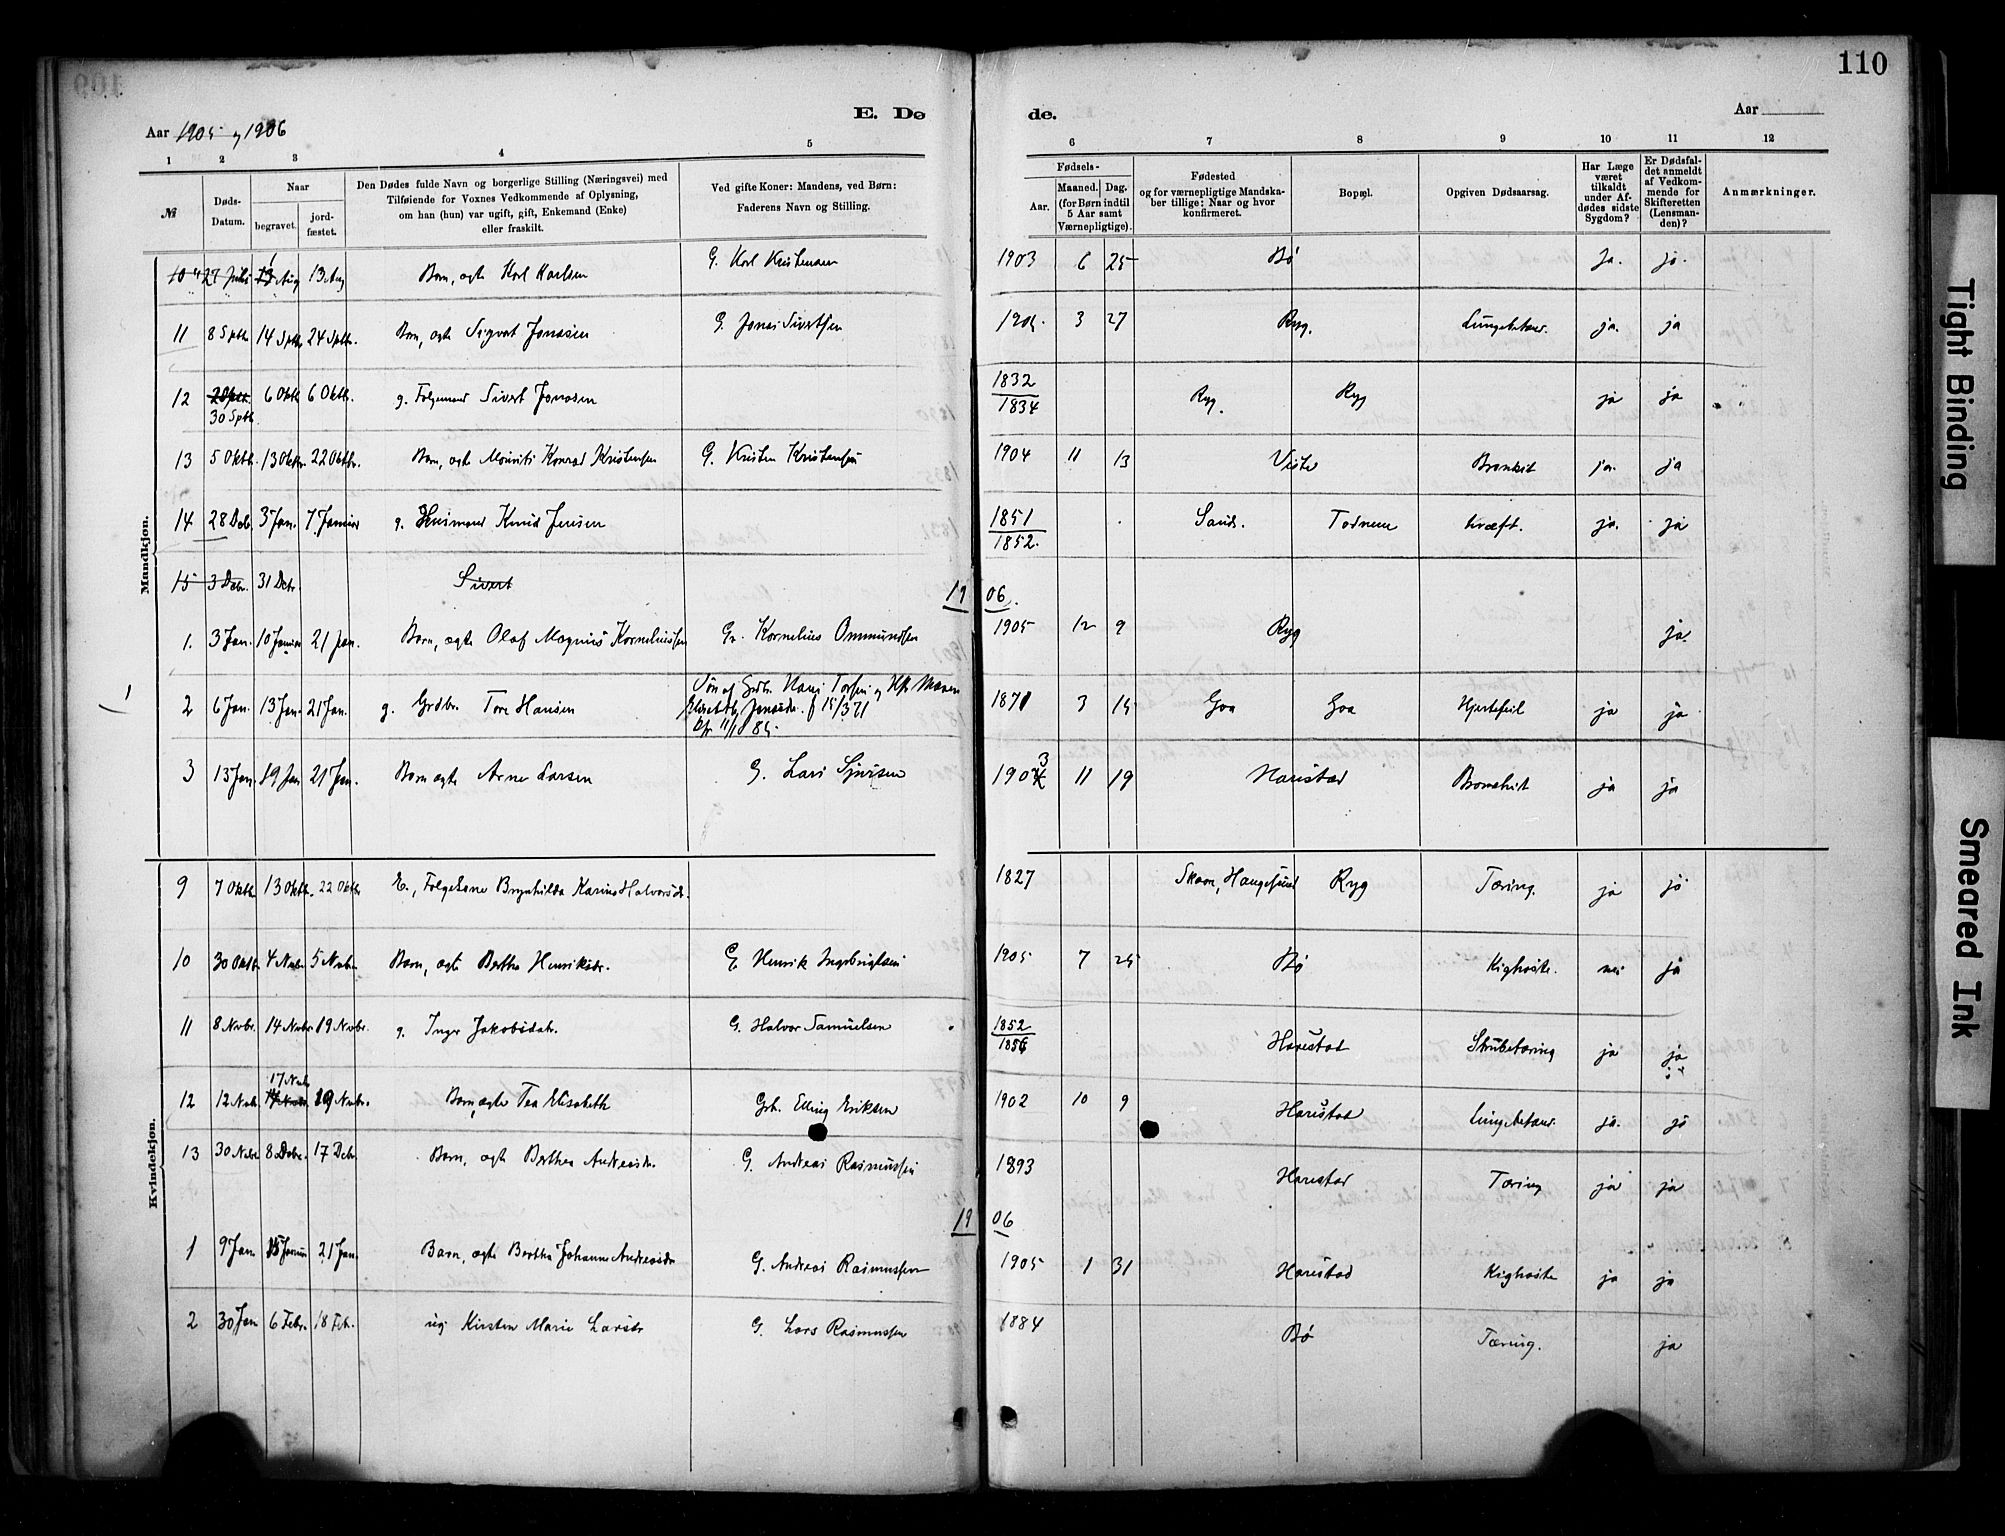 110
E. Dø de.
Aar 1905 og 1906
Aar
1 2 3 4 5 6 7 8 9 10 11 12
№
Døds-Datum.
Naar
begravet.
jord-fæstet.
Den Dødes fulde Navn og borgerlige Stilling (Næringsvei) med
Tilføiende for Voxnes Vedkommende af Oplysning,
om han (hun) var ugift, gift, Enkemand (Enke)
eller fraskilt.
Ved gifte Koner: Mandens, ved Børn:
Faderens Navn og Stilling.
Fødsels-
Aar.
Maaned. Dag.
(for Børn indtil
5 Aar samt
Værnepligtige).
Fødested
og for værnepligtige Mandska-
ber tillige: Naar og hvor
konfirmeret.
Bopæl.
Opgiven Dødsaarsag.
Har Læge
været
tilkaldt
under Af-
dødes sidste
Sygdom?
Er Dødsfal-
det anmeldt
af Vedkom-
mende for
Skifteretten
(Lensman-
den)?
Anmærkninger.
Mandkjøn.
10 27 Juli 13 Aug 13 Aug Barn, ægte Karl Karlsen G. Karl Kristensen 1903 6 25 Bø Ja. ja.
11 8 Sptb. 14 Sptb. 24 Sptb. Barn, ægte Sigvart Jonasen G. Jonas Sivertsen 1905. 3 27 Ryg. Lungebetænd. ja. ja
12 30 Sptb. 6 Oktb. 6 Oktb. g. Folgemand Sivert Jonasen 1832/1834 Ryg. Ryg ja ja
13 5 Oktb. 13 Oktbr. 22 Oktbr. Barn, ægte Mourits Konrad Kristensen G. Kristen Kristensen 1904 11 13 Viste Bronkit ja. ja
14 28 Deb. 3 Jan. 7 Januar g. Husmand Knud Jensen 1851/1852. Sand. Todnem kræft. ja. ja
15 3 Debr. 31 Debr. Sivert
19 06.
1. 3 Jan. 10 Januar 21 Jan. Barn, ægte Olaf Magnus Korneliussen Gr. Kornelius Ommundsen 1905 12 9 Ryg ja.
2 6 Jan. 13 Jan. 21 Jan. g. Grdbr. Tore Hansen Søn af Grdbr. Hans Torsen og Hst. Maren
Elisabeth Jonasdr. f 15/3 71
1871 3 15 Goa Goa Hjertefeil ja ja
3 13 Jan. 19 Jan 21 Jan. Barn ægte Arne Larsen G. Lars Sjursen 1903 11 19 Harestad Bronchit ja ja
Kvindekjøn.
9 7 Oktb. 13 Oktb. 22 Oktbr E., Folgekone Brynhilda Karine Halvorsdr. 1827 Skaare, Haugesund Ryg Tæring. ja ja
10 30 Oktbr. 4 Nvbr. 5 Nvbr. Barn, ægte Bertha Henriksdr. G. Henrik Ingebrigtsen 1905 7 25 Bø Kighoste. nei ja
11 8 Nvbr. 14 Nvbr. 19 Nvbr. g. Inger Jakobsdatr. G. Halvor Samuelsen 1852/1856 Harestad Strubetæring ja ja
12 12 Nvb. 17 Nvb. 19 Nvbr. Barn, ægte Tea Elisabeth Grb. Elling Eriksen 1902 10 9 Harestad Lungebetænd. ja. ja
13 30 Nvbr. 8 Debr. 17 Debr. Barn, ægte Berthea Andreasdr. G. Andreas Rasmussen 1893 Harestad Tæring ja ja
19 06
1 9 Jan. 15 Januar 21 Jan. Barn, ægte Bertha Johanne Andreasdr G. Andreas Rasmussen 1905 1 31 Harestad Kighoste ja ja
2 30 Jan 6 Febr. 18 Feb. ug Kirsten Marie Larsdr G. Lars Rasmussen 1884 Bø Tæring. ja
Tight Binding
Smeared Ink